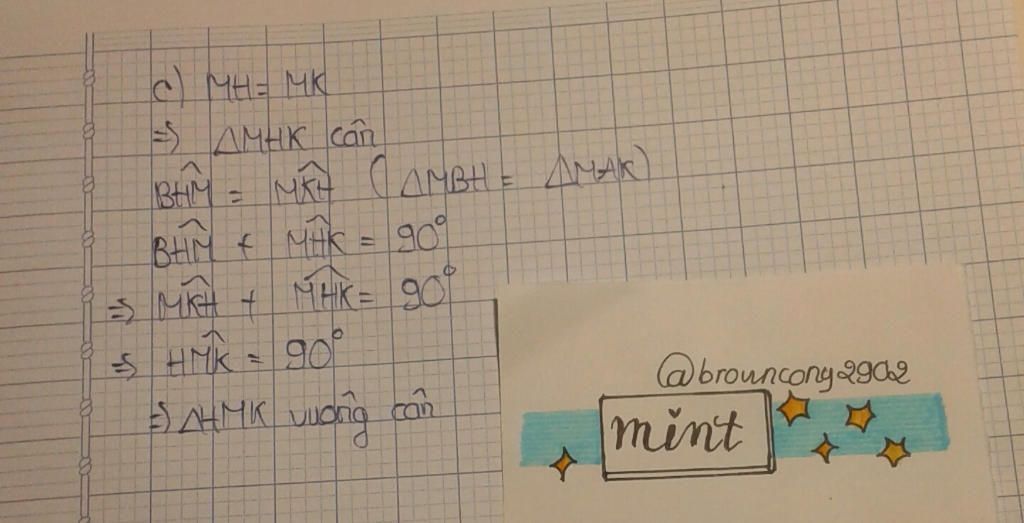 c) MH = MK
⇒ ΔMHK cân
BĤM = MK̂H (ΔMBH = ΔMAK)
BĤM + MĤK = 90°
⇒ MK̂H + MĤK = 90°
⇒ HM̂K = 90°
⇒ ΔHMK vuông cân
@browncony2902
mint